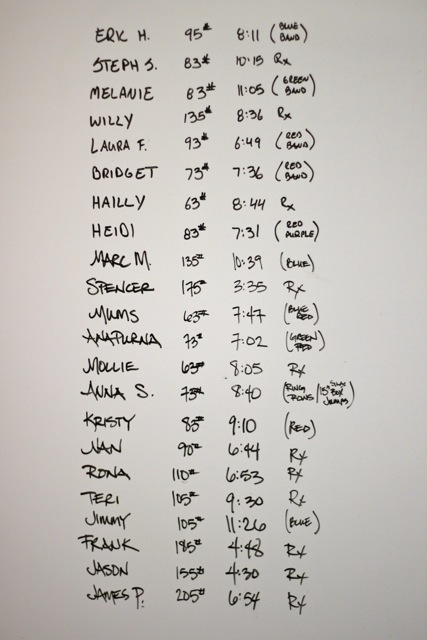 ERIK H. 95# 8:11 (BLUE BAND)
STEPH S. 83# 10:15 Rx
MELANIE 83# 11:05 (GREEN BAND)
WILLY 135# 8:36 Rx
LAURA F. 93# 6:49 (RED BAND)
BRIDGET 73# 7:36 (RED BAND)
HAILLY 63# 8:44 Rx
HEIDI 83# 7:31 (RED PURPLE)
MARC M. 135# 10:39 (BLUE)
SPENCER 175# 3:35 Rx
MUMS 63# 7:47 (BLUE RED)
ANAPURNA 73# 7:02 (GREEN RED)
MOLLIE 63# 8:05 Rx
ANNA S. 73# 8:40 (RING ROWS / 15" BOX JUMPS)
KRISTY 83# 9:10 (RED)
NAN 90# 6:44 Rx
RONA 110# 6:53 Rx
TERI 105# 9:30 Rx
JIMMY 105# 11:26 (BLUE)
FRANK 185# 4:48 Rx
JASON 155# 4:30 Rx
JAMES P. 205# 6:54 Rx